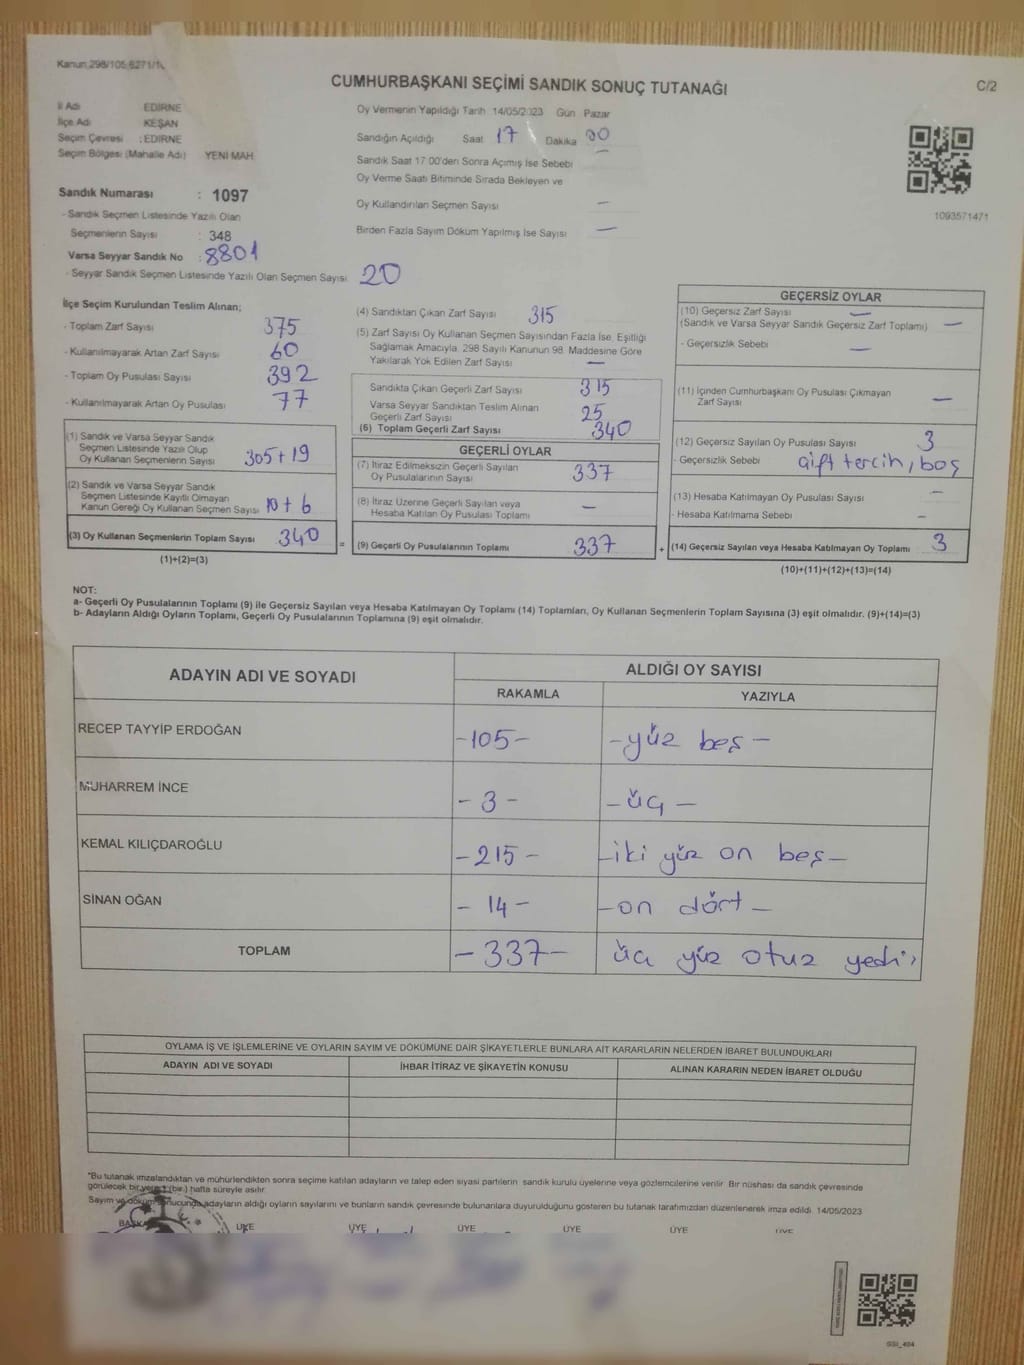 Kanun 298/105 6271/1
CUMHURBAŞKANI SEÇİMİ SANDIK SONUÇ TUTANAĞI
C/2
İl Adı EDİRNE
İlçe Adı KEŞAN
Seçim Çevresi : EDİRNE
Seçim Bölgesi (Mahalle Adı) YENİ MAH
Oy Vermenin Yapıldığı Tarih 14/05/2023 Gün Pazar
Sandığın Açıldığı Saat 17 Dakika 00
Sandık Saat 17 00'den Sonra Açımış İse Sebebi
Oy Verme Saati Bitiminde Sırada Bekleyen ve
Oy Kullandırılan Seçmen Sayısı —
Birden Fazla Sayım Döküm Yapılmış İse Sayısı —
1093571471
Sandık Numarası : 1097
- Sandık Seçmen Listesinde Yazılı Olan
Seçmenlerin Sayısı : 348
Varsa Seyyar Sandık No : 8801
- Seyyar Sandık Seçmen Listesinde Yazılı Olan Seçmen Sayısı 20
İlçe Seçim Kurulundan Teslim Alınan;
- Toplam Zarf Sayısı 375
- Kullanılmayarak Artan Zarf Sayısı 60
- Toplam Oy Pusulası Sayısı 392
- Kullanılmayarak Artan Oy Pusulası 77
(1) Sandık ve Varsa Seyyar Sandık
Seçmen Listesinde Yazılı Olup
Oy Kullanan Seçmenlerin Sayısı 305+19
(2) Sandık ve Varsa Seyyar Sandık
Seçmen Listesinde Kayıtlı Olmayan
Kanun Gereği Oy Kullanan Seçmen Sayısı 10+6
(3) Oy Kullanan Seçmenlerin Toplam Sayısı 340
(1)+(2)=(3)
(4) Sandıktan Çıkan Zarf Sayısı 315
(5) Zarf Sayısı Oy Kullanan Seçmen Sayısından Fazla İse, Eşitliği
Sağlamak Amacıyla, 298 Sayılı Kanunun 98. Maddesine Göre
Yakılarak Yok Edilen Zarf Sayısı —
Sandıkta Çıkan Geçerli Zarf Sayısı 315
Varsa Seyyar Sandıktan Teslim Alınan
Geçerli Zarf Sayısı 25
(6) Toplam Geçerli Zarf Sayısı 340
GEÇERLİ OYLAR
(7) İtiraz Edilmeksizin Geçerli Sayılan
Oy Pusulalarının Sayısı 337
(8) İtiraz Üzerine Geçerli Sayılan veya
Hesaba Katılan Oy Pusulası Toplamı —
= (9) Geçerli Oy Pusulalarının Toplamı 337 +
GEÇERSİZ OYLAR
(10) Geçersiz Zarf Sayısı —
(Sandık ve Varsa Seyyar Sandık Geçersiz Zarf Toplamı) —
- Geçersizlik Sebebi —
(11) İçinden Cumhurbaşkanı Oy Pusulası Çıkmayan
Zarf Sayısı —
(12) Geçersiz Sayılan Oy Pusulası Sayısı 3
- Geçersizlik Sebebi çift tercih, boş
(13) Hesaba Katılmayan Oy Pusulası Sayısı —
- Hesaba Katılmama Sebebi —
(14) Geçersiz Sayılan veya Hesaba Katılmayan Oy Toplamı 3
(10)+(11)+(12)+(13)=(14)
NOT:
a- Geçerli Oy Pusulalarının Toplamı (9) ile Geçersiz Sayılan veya Hesaba Katılmayan Oy Toplamı (14) Toplamları, Oy Kullanan Seçmenlerin Toplam Sayısına (3) eşit olmalıdır. (9)+(14)=(3)
b- Adayların Aldığı Oyların Toplamı, Geçerli Oy Pusulalarının Toplamına (9) eşit olmalıdır.
ADAYIN ADI VE SOYADI ALDIĞI OY SAYISI
RAKAMLA YAZIYLA
RECEP TAYYİP ERDOĞAN -105- -yüz beş-
MUHARREM İNCE -3- -üç-
KEMAL KILIÇDAROĞLU -215- -iki yüz on beş-
SİNAN OĞAN -14- -on dört-
TOPLAM -337- üç yüz otuz yedi
OYLAMA İŞ VE İŞLEMLERİNE VE OYLARIN SAYIM VE DÖKÜMÜNE DAİR ŞİKAYETLERLE BUNLARA AİT KARARLARIN NELERDEN İBARET BULUNDUKLARI
ADAYIN ADI VE SOYADI İHBAR İTİRAZ VE ŞİKAYETİN KONUSU ALINAN KARARIN NEDEN İBARET OLDUĞU
*Bu tutanak imzalandıktan ve mühürlendikten sonra seçime katılan adayların ve talep eden siyasi partilerin sandık kurulu üyelerine veya gözlemcilerine verilir. Bir nüshası da sandık çevresinde
görülecek bir yere 1 (bir) hafta süreyle asılır.
Sayım ve döküm sonucunda adayların aldığı oyların sayılarını ve bunların sandık çevresinde bulunanlara duyurulduğunu gösteren bu tutanak tarafımızdan düzenlenerek imza edildi. 14/05/2023
BAŞKA ÜYE ÜYE ÜYE ÜYE ÜYE ÜYE